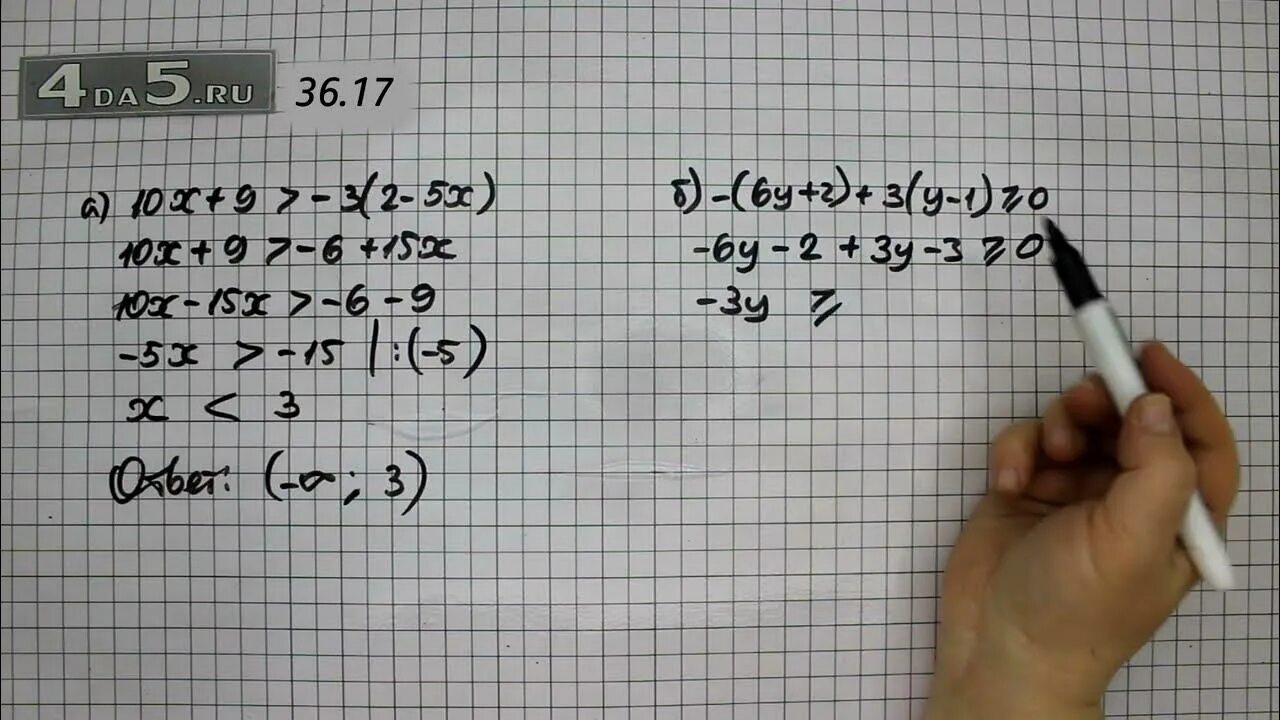 4DA5.RU 36.17
а) 10x + 9 > -3(2-5x)
10x + 9 > -6 + 15x
10x - 15x > -6 - 9
-5x > -15 | :(-5)
x < 3
Ответ: (-∞; 3)
б) -(6y+2) + 3(y-1) ⩾ 0
-6y - 2 + 3y - 3 ⩾ 0
-3y ⩾